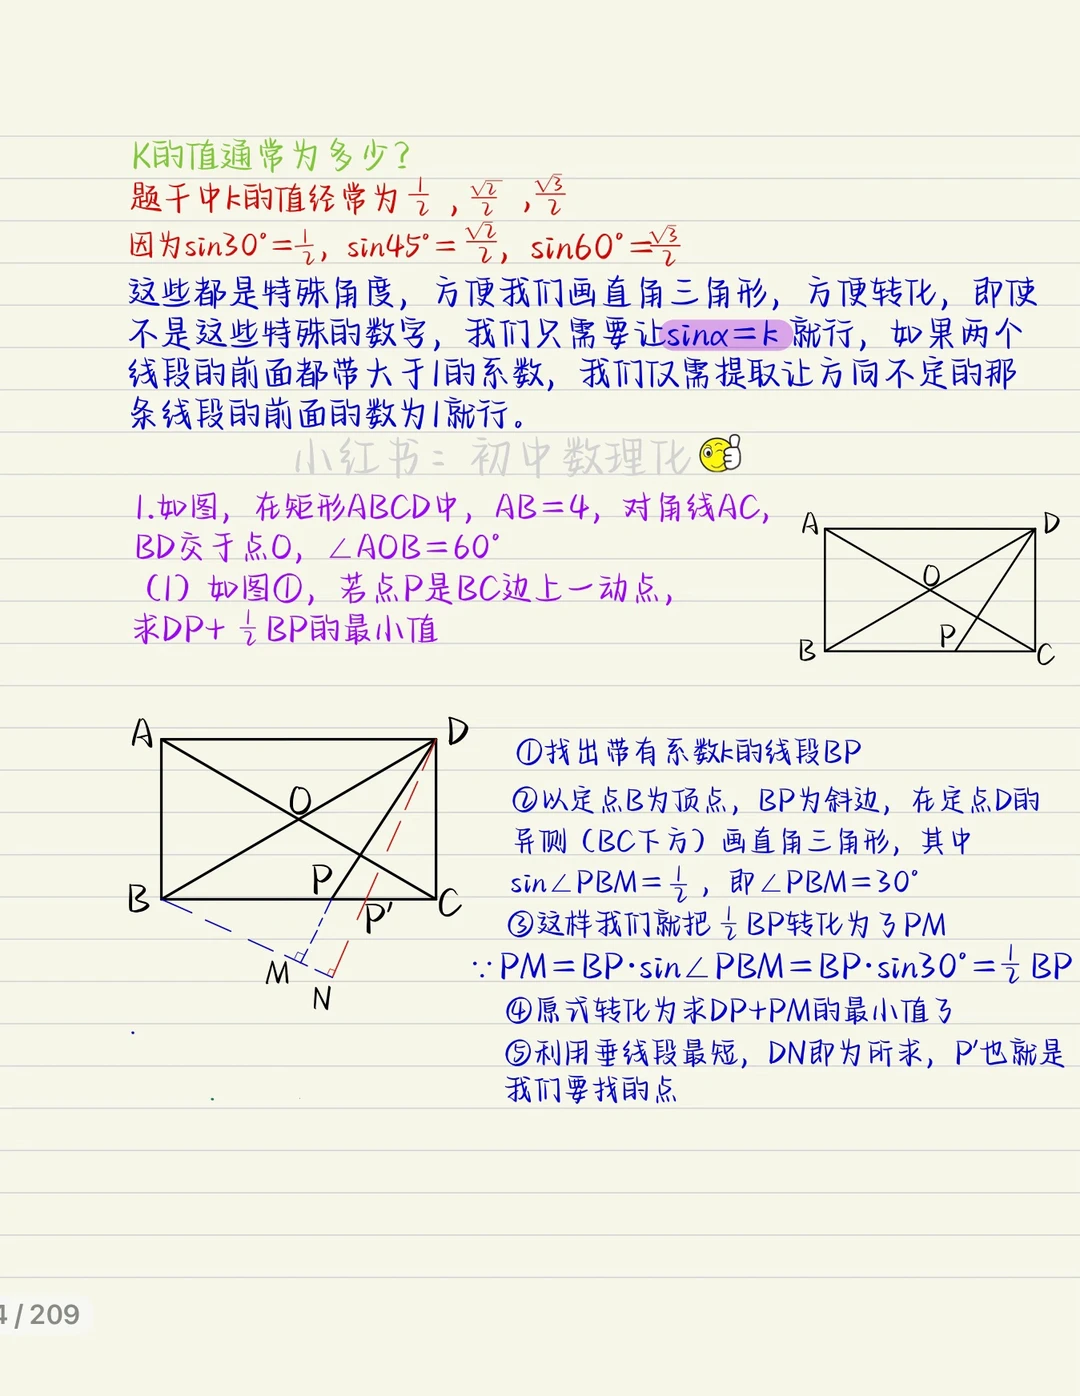 K的值通常为多少？
题干中k的值经常为 1/2，√2/2，√3/2
因为sin30°=1/2，sin45°=√2/2，sin60°=√3/2
这些都是特殊角度，方便我们画直角三角形，方便转化，即使
不是这些特殊的数字，我们只需要让sinα=k就行，如果两个
线段的前面都带大于1的系数，我们仅需提取让方向不定的那
条线段的前面的数为1就行。
小红书：初中数理化
1.如图，在矩形ABCD中，AB=4，对角线AC，
BD交于点O，∠AOB=60°
（1）如图①，若点P是BC边上一动点，
求DP+ 1/2 BP的最小值
A
D
O
B
P
C
A
D
O
B
P
P'
C
M
N
①找出带有系数k的线段BP
②以定点B为顶点，BP为斜边，在定点D的
异侧（BC下方）画直角三角形，其中
sin∠PBM=1/2，即∠PBM=30°
③这样我们就把 1/2 BP转化为了PM
∵PM=BP·sin∠PBM=BP·sin30°=1/2 BP
④原式转化为求DP+PM的最小值了
⑤利用垂线段最短，DN即为所求，P'也就是
我们要找的点
4/209